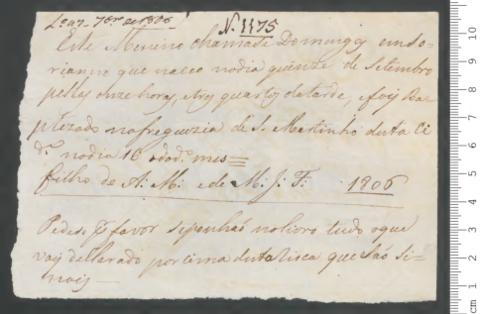 N. 1175
Este Menino chamase Domingos
rianno que naceo nodia quinze de Setembro
pellas onze horas, e tres quartos da tarde, e foy Bap
ptezado na freguezia de S. Martinho desta Ci
de. nodia 16 do do. mes
filho de A: M: e de M: J: F: 1806
Pedese por favor seponhaó nolivro tudo oque
vay declarado por cima desta Risca que saó si=
naes
cm 1 2 3 4 5 6 7 8 9 10